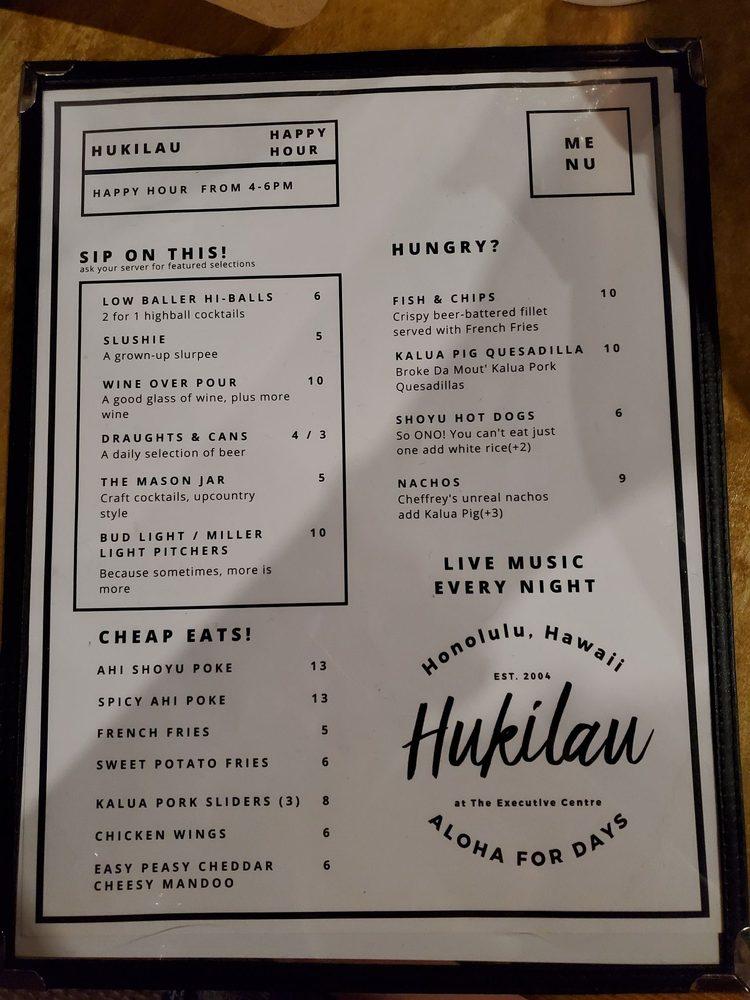 HUKILAU
HAPPY
HOUR
HAPPY HOUR FROM 4-6PM
ME
NU
SIP ON THIS!
ask your server for featured selections
LOW BALLER HI-BALLS 6
2 for 1 highball cocktails
SLUSHIE 5
A grown-up slurpee
WINE OVER POUR 10
A good glass of wine, plus more
wine
DRAUGHTS & CANS 4 / 3
A daily selection of beer
THE MASON JAR 5
Craft cocktails, upcountry
style
BUD LIGHT / MILLER 10
LIGHT PITCHERS
Because sometimes, more is
more
CHEAP EATS!
AHI SHOYU POKE 13
SPICY AHI POKE 13
FRENCH FRIES 5
SWEET POTATO FRIES 6
KALUA PORK SLIDERS (3) 8
CHICKEN WINGS 6
EASY PEASY CHEDDAR 6
CHEESY MANDOO
HUNGRY?
FISH & CHIPS 10
Crispy beer-battered fillet
served with French Fries
KALUA PIG QUESADILLA 10
Broke Da Mout' Kalua Pork
Quesadillas
SHOYU HOT DOGS 6
So ONO! You can't eat just
one add white rice(+2)
NACHOS 9
Cheffrey's unreal nachos
add Kalua Pig(+3)
LIVE MUSIC
EVERY NIGHT
Honolulu, Hawaii
EST. 2004
Hukilau
at The Executive Centre
ALOHA FOR DAYS